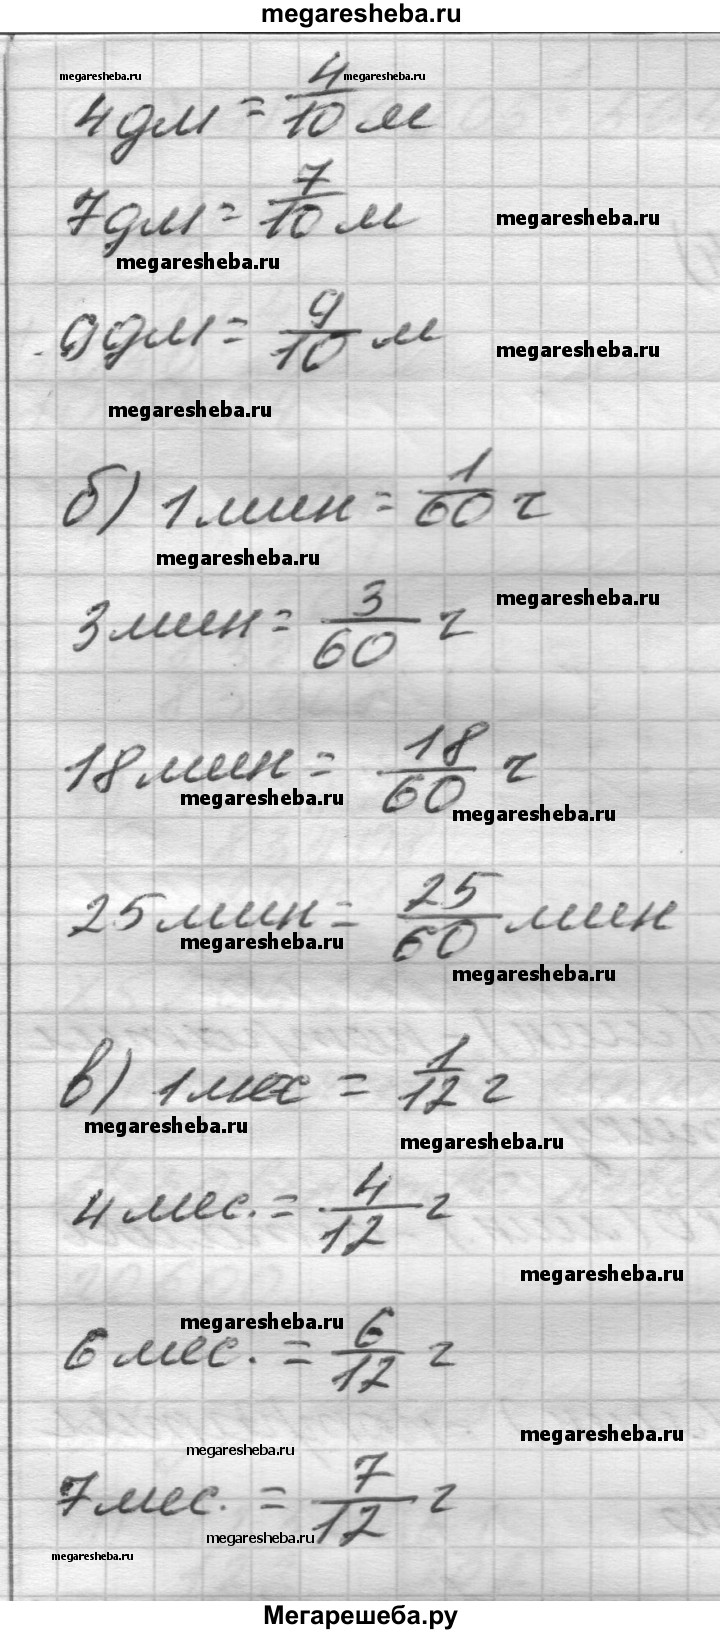 megaresheba.ru
megaresheba.ru megaresheba.ru
4 дм = 4/10 м
7 дм = 7/10 м
megaresheba.ru
megaresheba.ru
9 дм = 9/10 м
megaresheba.ru
megaresheba.ru
б) 1 мин = 1/60 ч
megaresheba.ru
megaresheba.ru
3 мин = 3/60 ч
18 мин = 18/60 ч
megaresheba.ru
megaresheba.ru
25 мин = 25/60 мин
megaresheba.ru
megaresheba.ru
в) 1 мес = 1/12 г
megaresheba.ru
megaresheba.ru
4 мес. = 4/12 г
megaresheba.ru
megaresheba.ru
6 мес. = 6/12 г
megaresheba.ru
megaresheba.ru
7 мес. = 7/12 г
megaresheba.ru
megaresheba.ru
Мегарешеба.ру